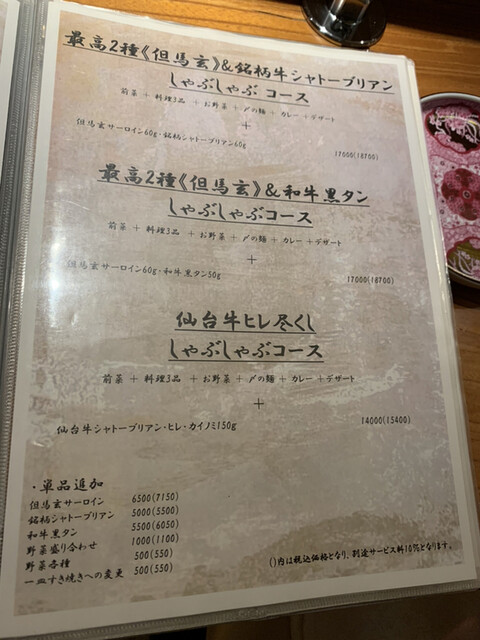 最高2種《但馬玄》&銘柄牛シャトーブリアン
しゃぶしゃぶ コース
前菜 + 料理3品 + お野菜 + 〆の麺 + カレー +デザート
+
但馬玄サーロイン60g・銘柄シャトーブリアン60g
17000(18700)
最高2種《但馬玄》&和牛黒タン
しゃぶしゃぶコース
前菜 + 料理3品 + お野菜 + 〆の麺 + カレー +デザート
+
但馬玄サーロイン60g・和牛黒タン50g
17000(18700)
仙台牛ヒレ尽くし
しゃぶしゃぶコース
前菜 + 料理3品 +お野菜 + 〆の麺 + カレー +デザート
+
仙台牛シャトーブリアン・ヒレ・カイノミ150g
14000(15400)
・単品追加
但馬玄サーロイン 6500(7150)
銘柄シャトーブリアン 5000(5500)
和牛黒タン 5500(6050)
野菜盛り合わせ 1000(1100)
野菜各種 500(550)
一皿すき焼きへの変更 500(550)
()内は税込価格となり、別途サービス料10%となります。